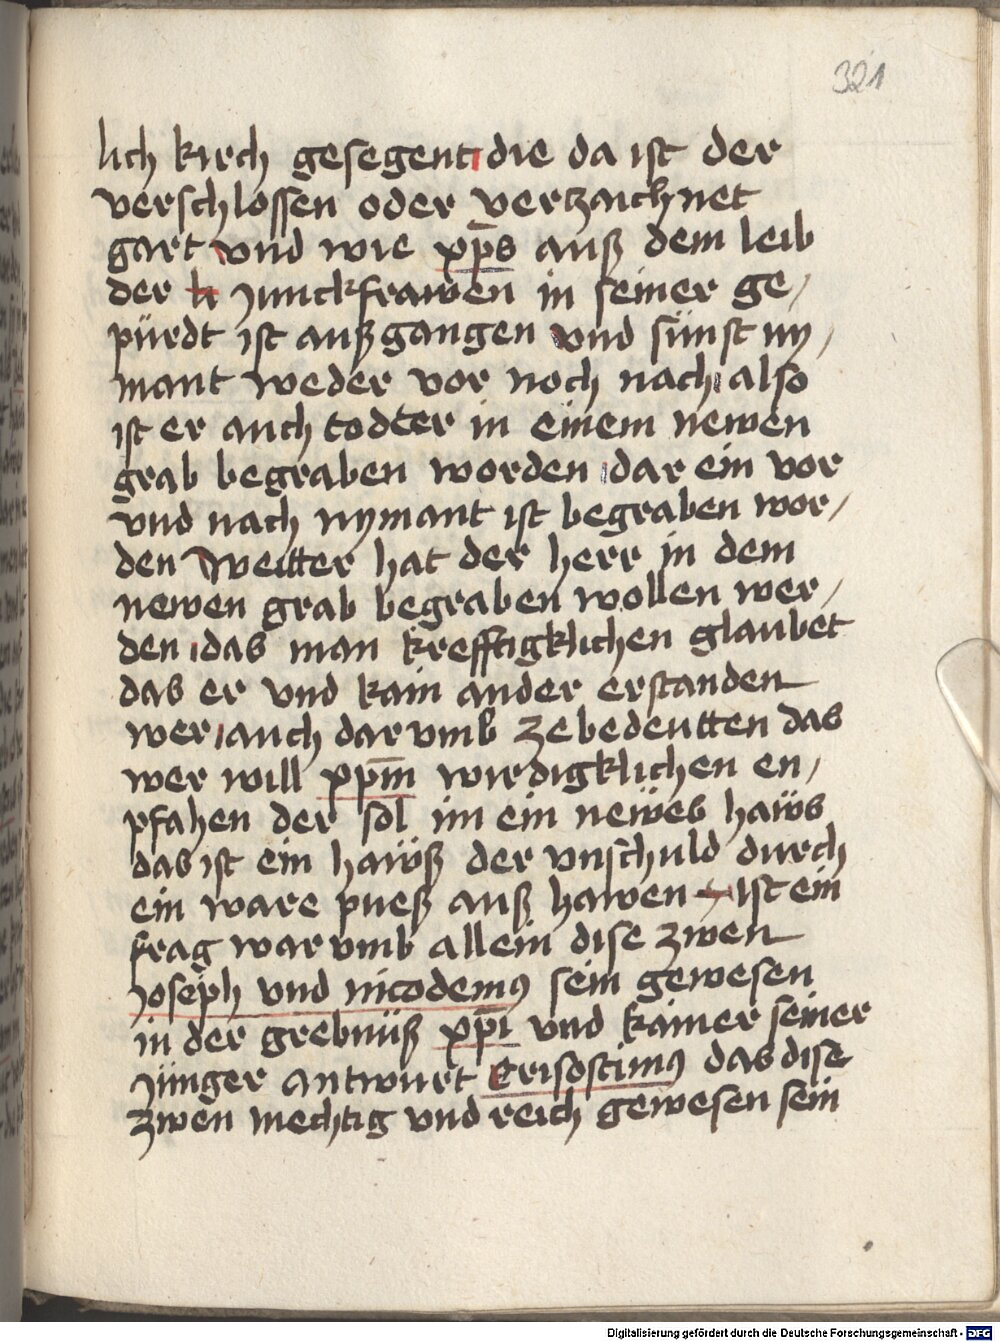 321
lich kirch gesegent die da ist der
verschlossen oder verzaichnet
gart vnd wie xp̄s auß dem leib
der k junckfrawen in seiner ge/
pürdt ist außgangen vnd sünst ny/
mant weder vor noch nach also
ist er auch todter in einem newen
grab begraben worden dar ein vor
vnd nach nymant ist begraben wor/
den Weitter hat der herr in dem
newen grab begraben wollen wer/
den das man krefftigklichen glaubet
das er vnd kain ander erstanden
wer auch dar vmb ze bedeutten das
wer will xp̄m wirdigklichen en/
pfahen der sol im ein newes haws
das ist ein hawß der vnschuld durch
ein ware pueß auß hawen ist ein
frag war vmb allein dise zwen
joseph vnd nicodemꝰ sein gewesen
in der grebnüß xp̄i vnd kainer seiner
jünger antwurt Crisostimꝰ das dise
zwen mechtig vnd reich gewesen sein
Digitalisierung gefördert durch die Deutsche Forschungsgemeinschaft - DFG